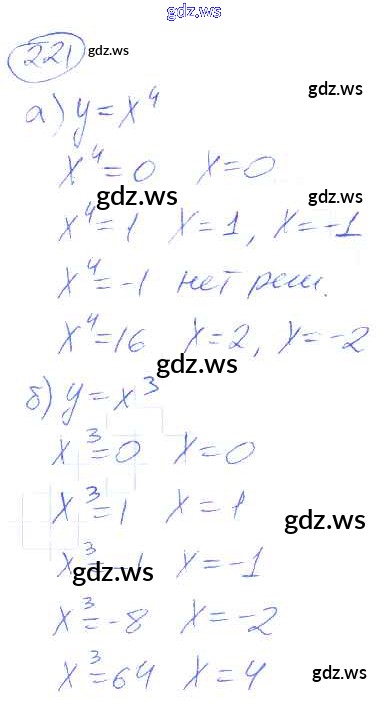 gdz.ws
221 gdz.ws
gdz.ws
а) y = x⁴
x⁴ = 0 x = 0
gdz.ws gdz.ws
x⁴ = 1 x = 1, x = -1
x⁴ = -1 нет реш.
x⁴ = 16 x = 2, x = -2
gdz.ws
б) y = x³
x³ = 0 x = 0
x³ = 1 x = 1
gdz.ws
x³ = -1 x = -1
gdz.ws
x³ = -8 x = -2
x³ = 64 x = 4
gdz.ws